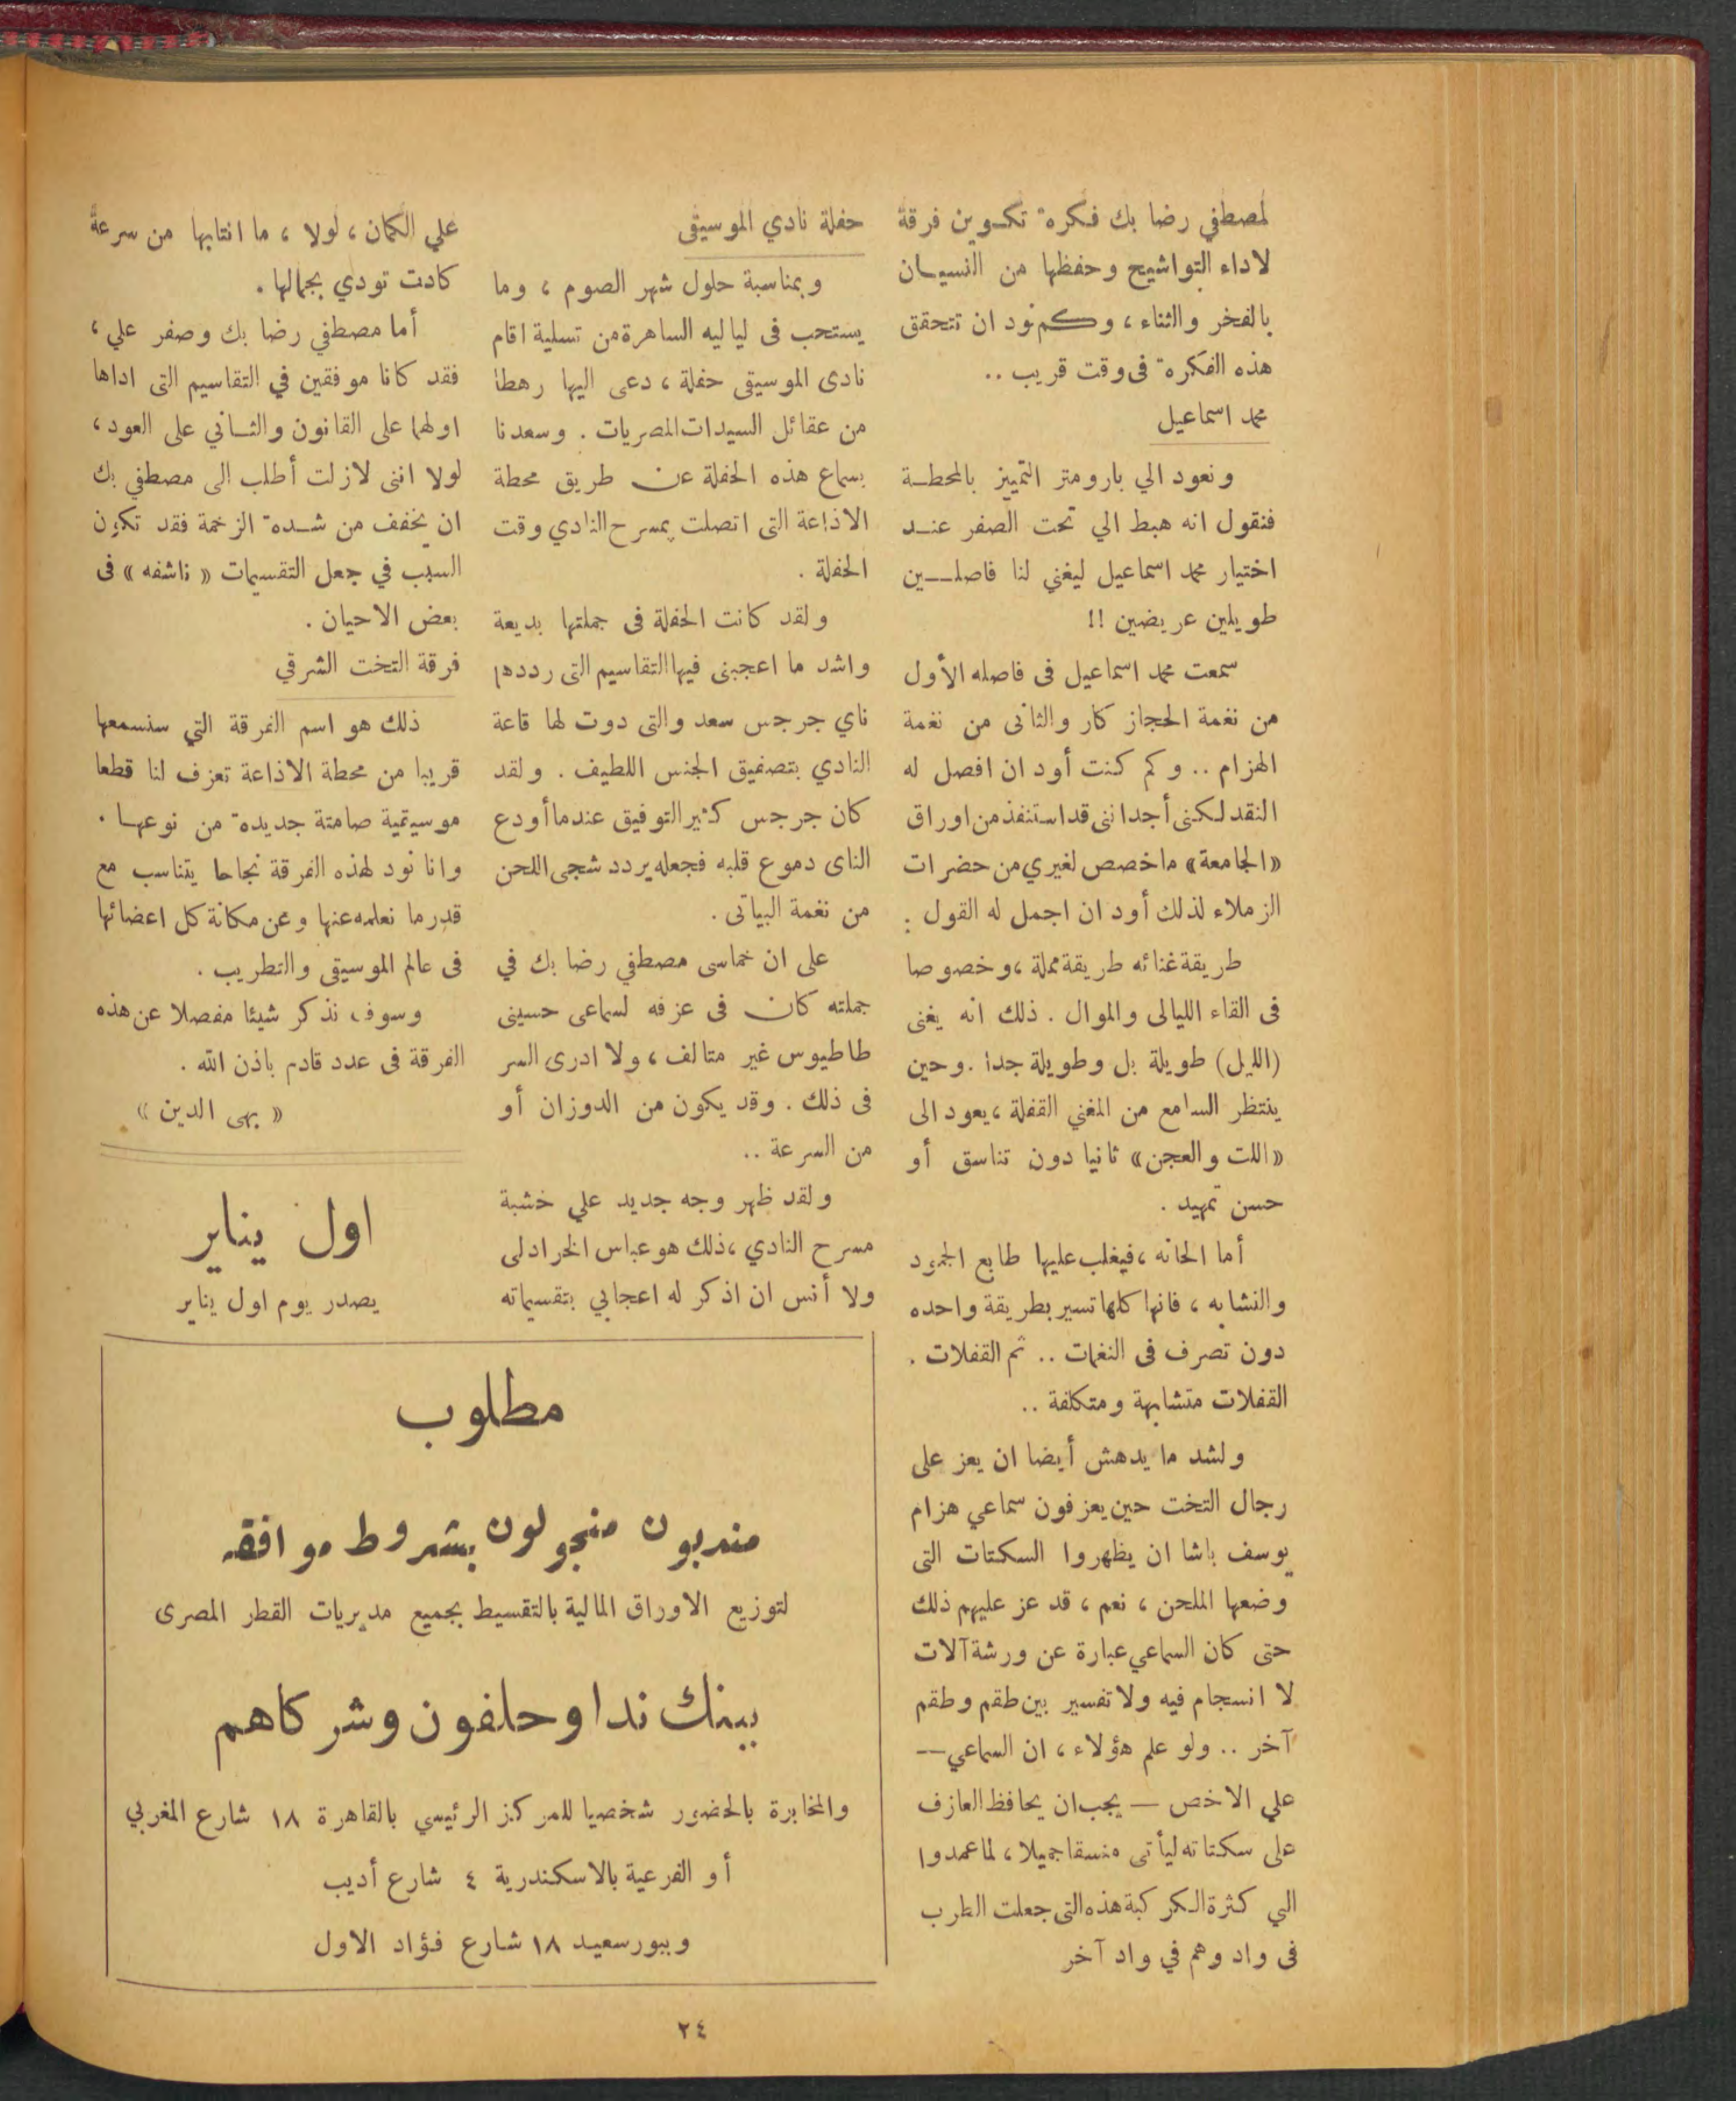 لمصطفي رضا بك فكرة تكوين فرقة
لاداء التواشيح وحفظها من النسيان
بالفخر والثناء ، وكم نود ان تتحقق
هذه الفكرة فى وقت قريب ..
محمد اسماعيل
ونعود الي بارومتر التمييز بالمحطة
فنقول انه هبط الي تحت الصفر عند
اختيار محمد اسماعيل ليغني لنا فاصلين
طويلين عريضين !!
سمعت محمد اسماعيل فى فاصله الأول
من نغمة الحجاز كار والثانى من نغمة
الهزام .. وكم كنت أود ان افصل له
النقد لكنى أجدانى قد استنفذ من اوراق
«الجامعة» ماخصص لغيري من حضرات
الزملاء لذلك أود ان اجمل له القول :
طريقة غنائه طريقة مملة ، وخصوصا
فى القاء الليالى والموال . ذلك انه يغنى
(الليل) طويلة بل وطويلة جدا . وحين
ينتظر السامع من المغني القفلة ، يعود الى
«اللت والعجن» ثانيا دون تناسق أو
حسن تمهيد .
أما الحانه ، فيغلب عليها طابع الجمود
والتشابه ، فانها كلها تسير بطريقة واحده
دون تصرف فى النغمات .. ثم القفلات .
القفلات متشابهة ومتكلفة ..
ولشد ما يدهش أيضا ان يعز على
رجال التخت حين يعزفون سماعي هزام
يوسف باشا ان يظهروا السكتات التى
وضعها الملحن ، نعم ، قد عز عليهم ذلك
حتى كان السماعي عبارة عن ورشة آلات
لا انسجام فيه ولا تفسير بين طقم وطقم
آخر .. ولو علم هؤلاء ، ان السماعي —
علي الاخص — يجب ان يحافظ العازف
على سكتاته ليأتى منسقا جميلا ، لما عمدوا
الي كثرة الكركبة هذه التى جعلت الطرب
فى واد وهم في واد آخر
حفلة نادي الموسيقى
وبمناسبة حلول شهر الصوم ، وما
يستحب فى لياليه الساهرة من تسلية اقام
نادى الموسيقى حفلة ، دعى اليها رهطا
من عقائل السيدات المصريات . وسعدنا
بسماع هذه الحفلة عن طريق محطة
الاذاعة التى اتصلت بمسرح النادي وقت
الحفلة .
ولقد كانت الحفلة فى جملتها بديعة
واشد ما اعجبنى فيها التقاسيم التى رددها
ناي جرجس سعد والتى دوت لها قاعة
النادي بتصفيق الجنس اللطيف . ولقد
كان جرجس كثير التوفيق عندما أودع
الناى دموع قلبه فجعله يردد شجى اللحن
من نغمة البياتى .
على ان خماسى مصطفي رضا بك في
جملته كان فى عزفه لسماعى حسينى
طاطيوس غير متالف ، ولا ادرى السر
فى ذلك . وقد يكون من الدوزان أو
من السرعة ..
ولقد ظهر وجه جديد علي خشبة
مسرح النادي ، ذلك هو عباس الخرادلى
ولا أنس ان اذكر له اعجابي بتقسيماته
علي الكمان ، لولا ، ما انتابها من سرعة
كادت تودي بجمالها .
أما مصطفي رضا بك وصفر علي ،
فقد كانا موفقين في التقاسيم التى اداها
اولهما على القانون والثاني على العود ،
لولا اننى لازلت أطلب الى مصطفي بك
ان يخفف من شدة الزخمة فقد تكون
السبب في جعل التقسيمات « ناشفه » فى
بعض الاحيان .
فرقة التخت الشرقي
ذلك هو اسم الفرقة التي سنسمعها
قريبا من محطة الاذاعة تعزف لنا قطعا
موسيقية صامتة جديدة من نوعها .
وانا نود لهذه الفرقة نجاحا يتناسب مع
قدر ما نعلمه عنها وعن مكانة كل اعضائها
فى عالم الموسيقى والتطريب .
وسوف نذكر شيئا مفصلا عن هذه
الفرقة فى عدد قادم باذن الله .
« بهى الدين »
اول يناير
يصدر يوم اول يناير
مطلوب
مندبون متجولون بشروط موافقه
لتوزيع الاوراق المالية بالتقسيط بجميع مديريات القطر المصرى
ببنك ندا وحلفون وشركاهم
والمخابرة بالحضور شخصيا للمركز الرئيسي بالقاهرة ١٨ شارع المغربي
أو الفرعية بالاسكندرية ٤ شارع أديب
وببورسعيد ١٨ شارع فؤاد الاول
٢٤